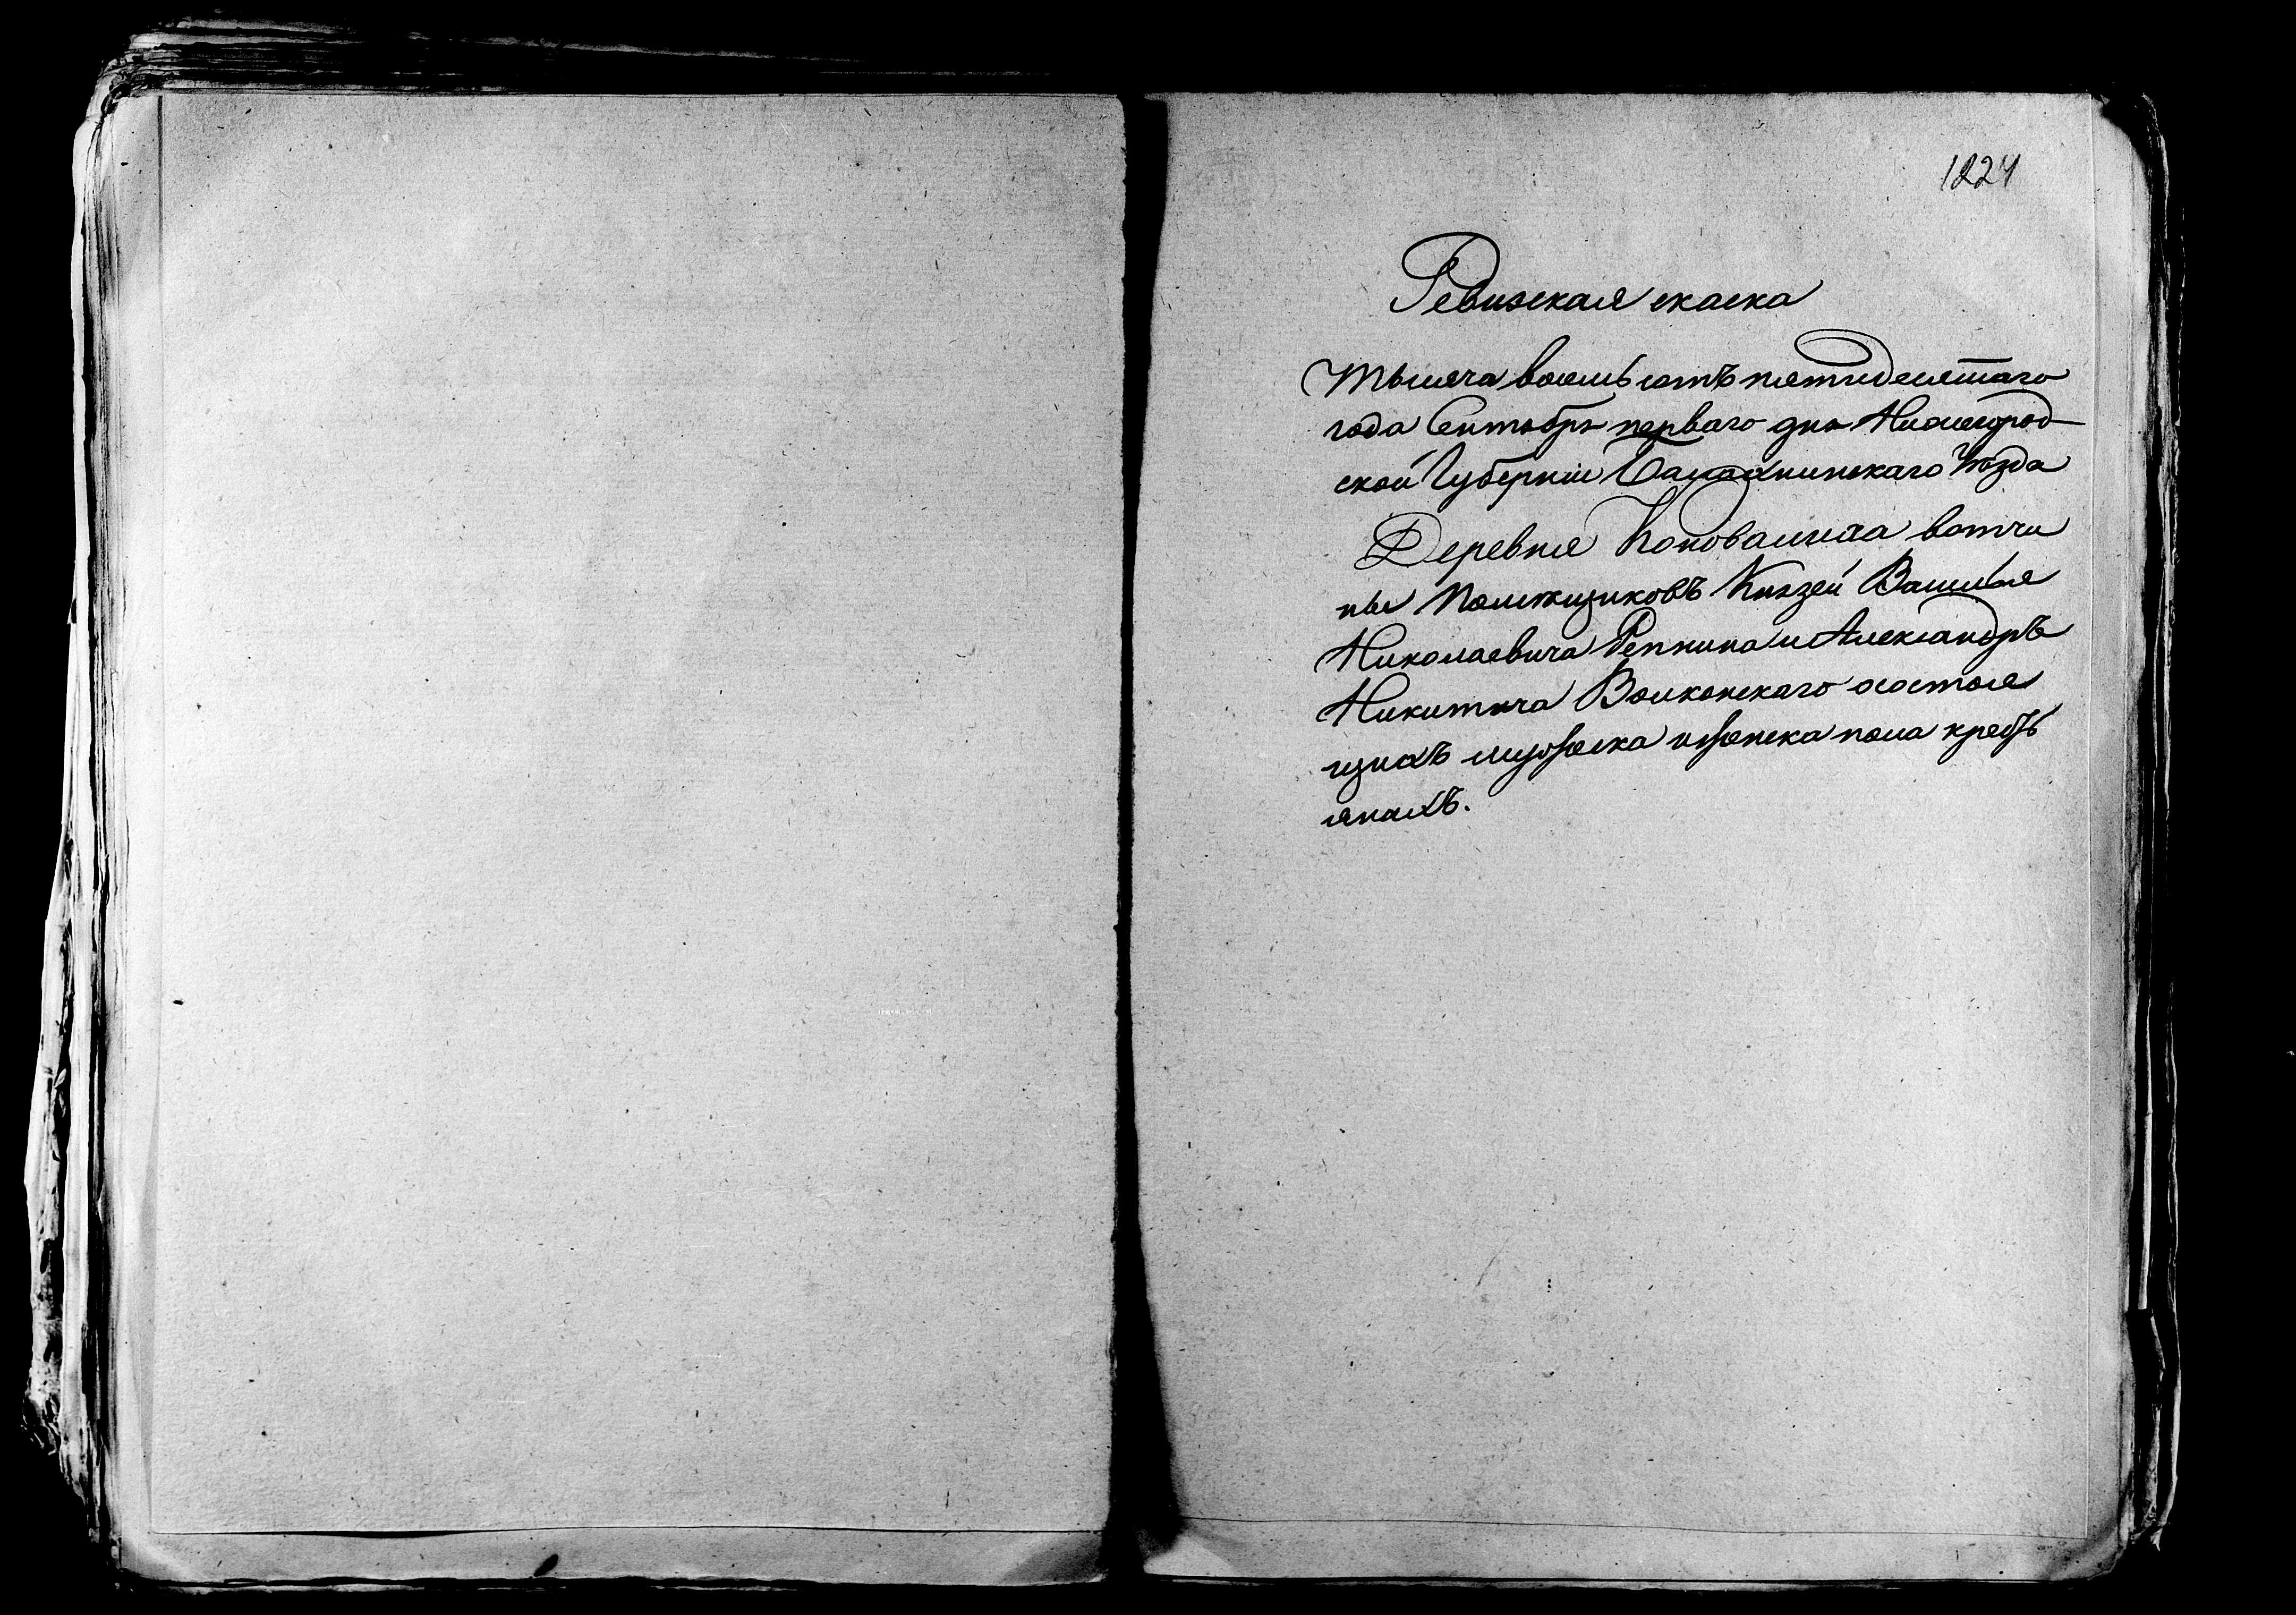 1224
Ревизская скаска
Тысяча восемь сотъ пятидесятаго
года Сентября перваго дня Нижегород
ской Губерніи Балахнинскаго Уѣзда
Деревня Коновалиха вотчи
ны Помѣщиковъ Князей Василья
Николаевича Репнина и Александръ
Никитича Волконскаго состоя
щихъ мужеска и женска пола кресть
янахъ.